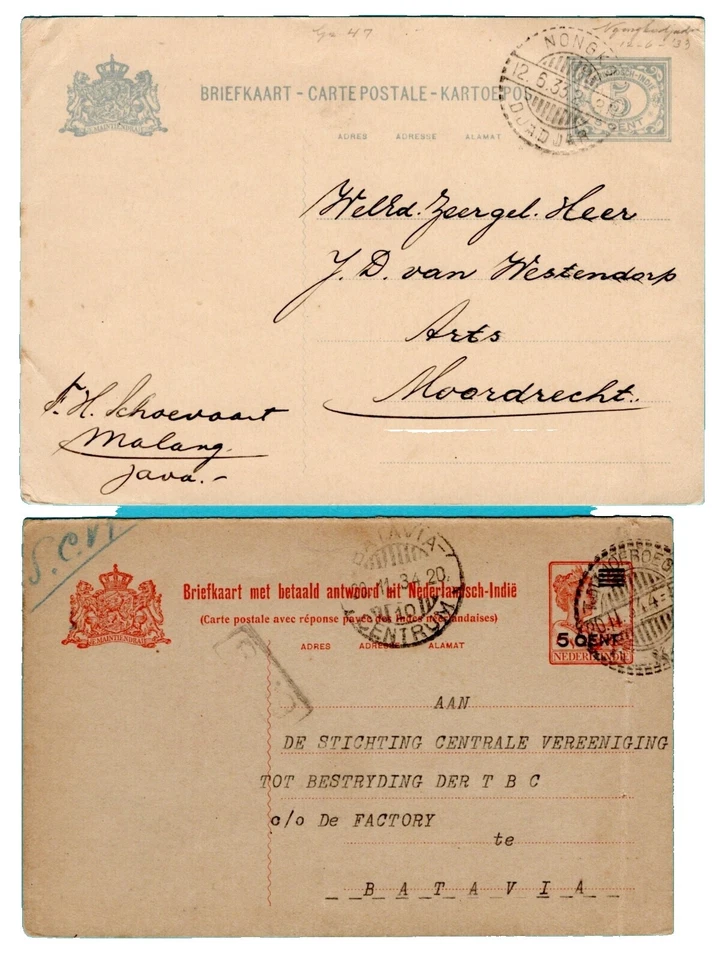 Gs 47
12-6-'33
NONGKO
12.6.33
DJADJAR
5
CENT
JE MAINTIENDRAI
BRIEFKAART - CARTE POSTALE - KARTOEPOS
ADRES ADRESSE ALAMAT
WelEd. Zeergel. Heer
J. D. van Westendorp
Arts
Moordrecht.
F. H. Schoevaart
Malang.
Java.-
BATAVIA-
11.34.20
CENTRUM
JE MAINTIENDRAI
Briefkaart met betaald antwoord uit Nederlandsch-Indië
(Carte postale avec réponse payée des Indes néerlandaises)
ADRES ADRESSE ALAMAT
5 CENT
NEDERL-INDIË
AAN
DE STICHTING CENTRALE VEREENIGING
TOT BESTRYDING DER T B C
c/o De FACTORY
te
B A T A V I A